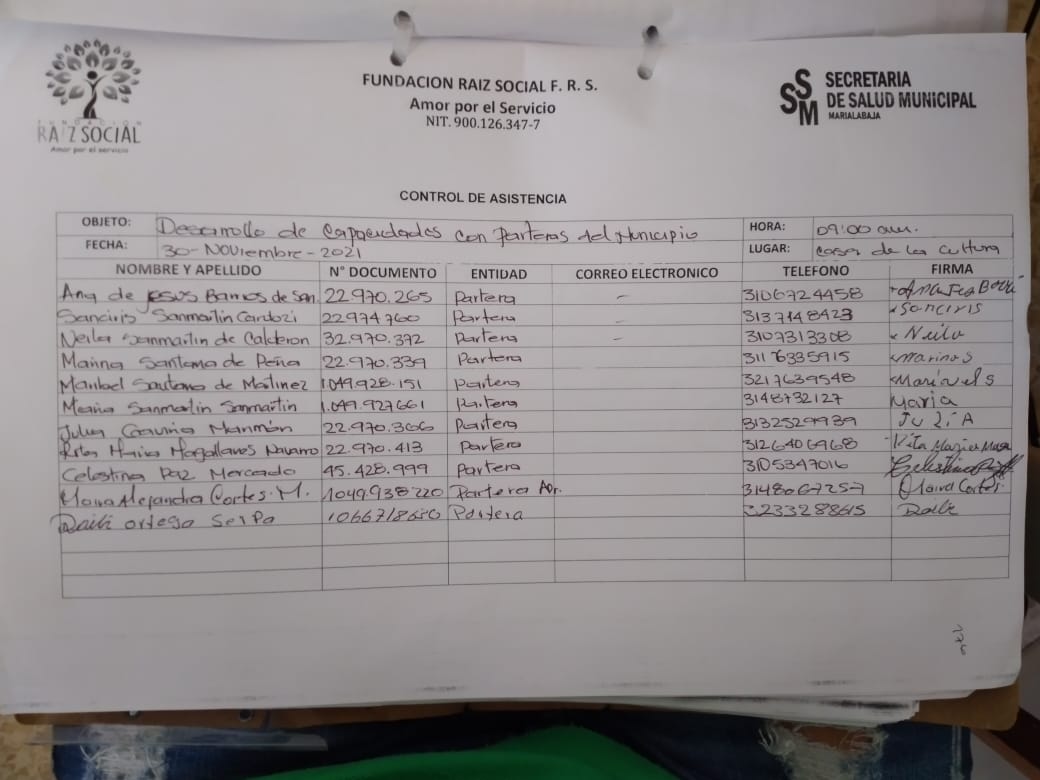 FUNDACION
RAIZ SOCIAL
Amor por el servicio
FUNDACION RAIZ SOCIAL F. R. S.
Amor por el Servicio
NIT. 900.126.347-7
SSM SECRETARIA
DE SALUD MUNICIPAL
MARIALABAJA
CONTROL DE ASISTENCIA
OBJETO: Desarrollo de Capacidades con Parteras del Municipio HORA: 09:00 am.
FECHA: 30-Noviembre-2021 LUGAR: Casa de la Cultura
NOMBRE Y APELLIDO N° DOCUMENTO ENTIDAD CORREO ELECTRONICO TELEFONO FIRMA
Ana de Jesus Barrios de San. 22.970.265 Partera – 3106724458
Sanciris Sanmartin Cardozi 22974760 Partera – 3137148423 Sanciris
Neila Sanmartin de Calderon 32.970.372 Partera – 3107313308 Neila
Marina Santana de Peña 22.970.339 Partera 3116335915 Marina S
Maribel Santana de Martinez 1.049.928.151 Partera 3217639548 Marivel S
Maria Sanmartin Sanmartin 1.049.927661 Partera 3148732127 Maria
Julia 22.970.366 Partera 3132529939 JuLiA
Rita Maria Magallanes Navarro 22.970.413 Partera 3126406968 Rita Maria
Celestina Paz Mercado 45.428.999 Partera 3105347016 Celestina
Maira Alejandra Cortes M. 1049.938220 Partera Apr. 3148067257 Maira Cortes
Daili Ortega Serpa 1066718680 Partera 3233288615 Daili